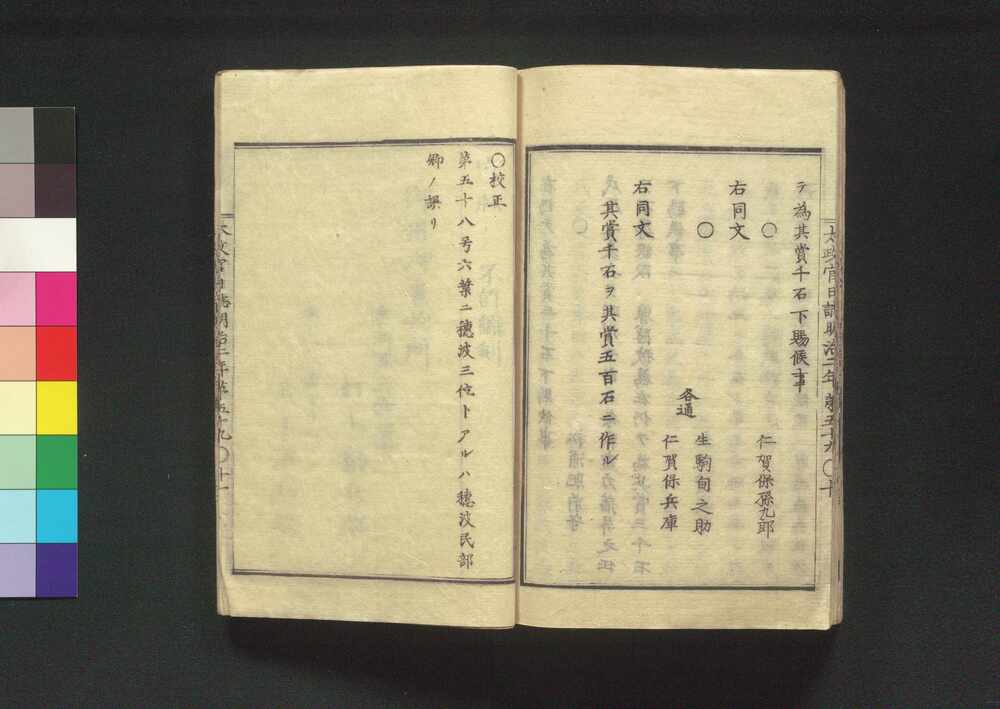 ヲ為其賞千石下賜候事
〇
仁賀保孫九郎
右同文
〇
各通
生駒甸之助
仁賀保兵庫
右同文
其賞千石ヲ其賞五百石ニ作ル
太政官日誌明治二年第五十九〇十
〇校正
第五十八号六葉ニ穂波三位トアルハ穂波民部
卿ノ誤リ
太政官日誌明治二年第五十九〇十一